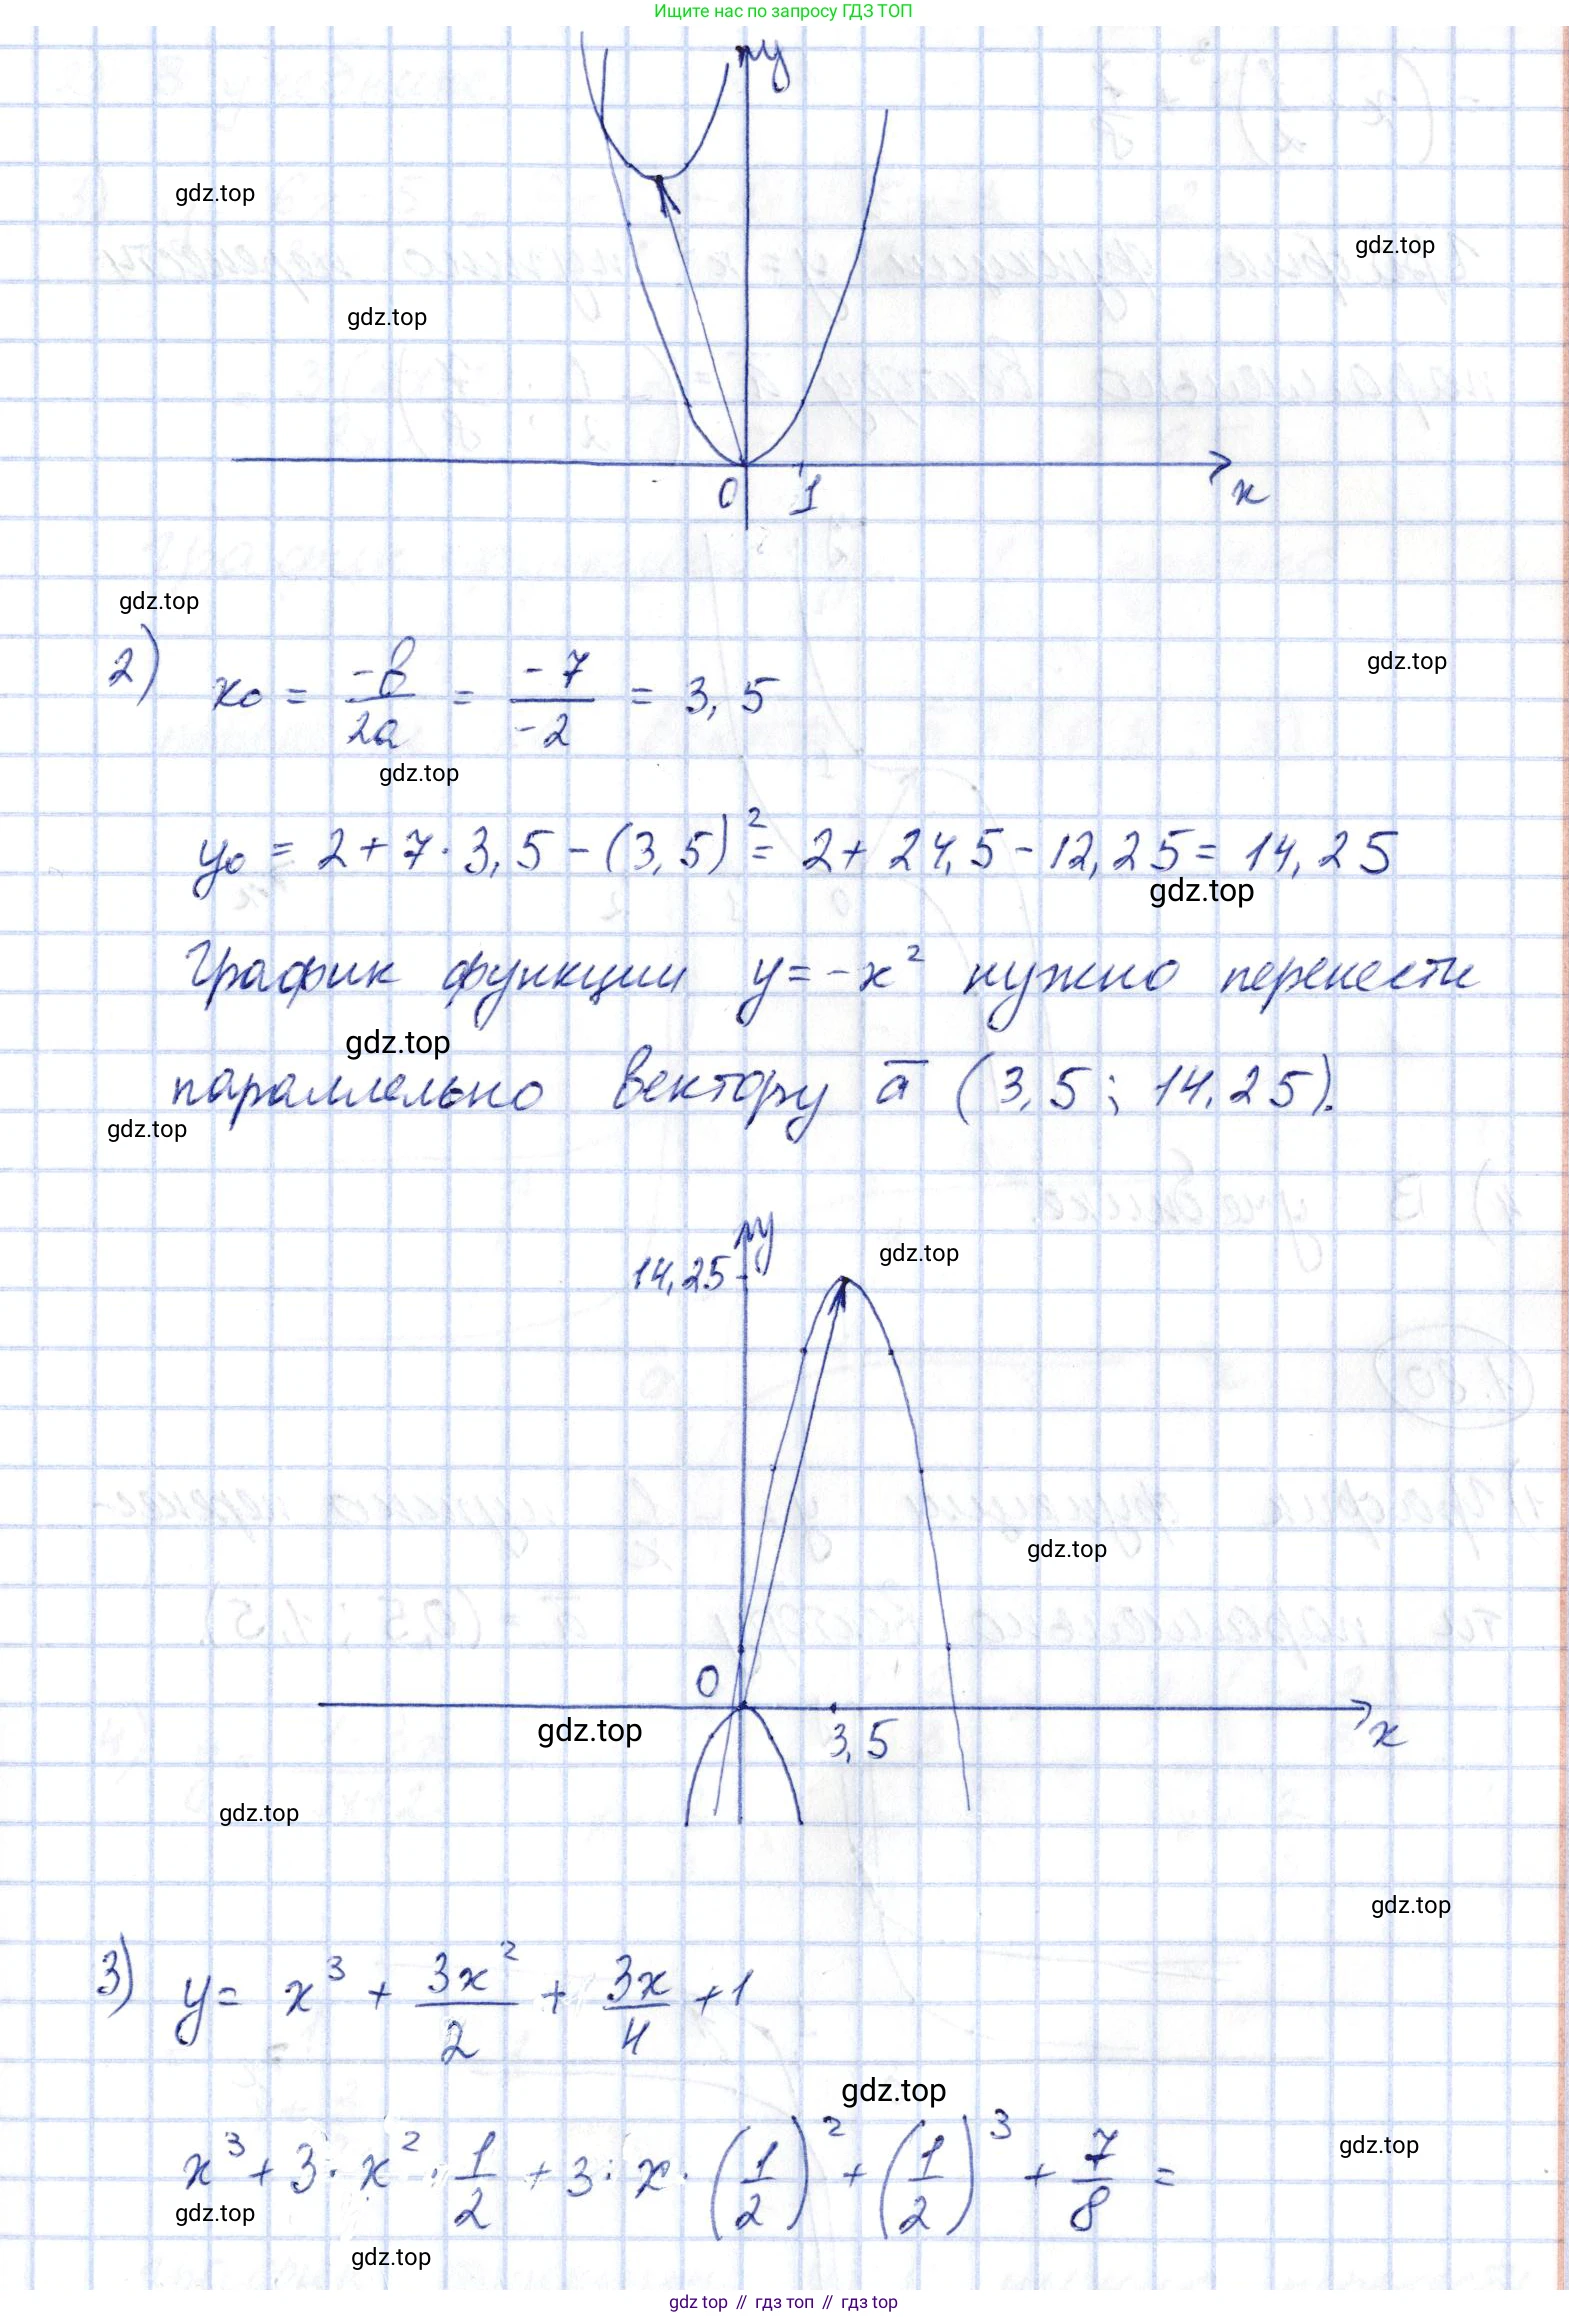 Ищите нас по запросу ГДЗ ТОП
y
gdz.top
gdz.top
gdz.top
0 1 x
gdz.top
2) x₀ = -b/2a = -7/-2 = 3,5
gdz.top
gdz.top
y₀ = 2 + 7 · 3,5 - (3,5)² = 2 + 24,5 - 12,25 = 14,25
gdz.top
График функции y = -x² нужно перенести
gdz.top
параллельно вектору a̅ (3,5; 14,25).
gdz.top
y
14,25
gdz.top
gdz.top
0
gdz.top
3,5 x
gdz.top
gdz.top
3) y = x³ + 3x²/2 + 3x/4 + 1
gdz.top
x³ + 3 · x² · 1/2 + 3 · x · (1/2)² + (1/2)³ + 7/8 =
gdz.top
gdz.top
gdz.top
gdz top // гдз топ // gdz top